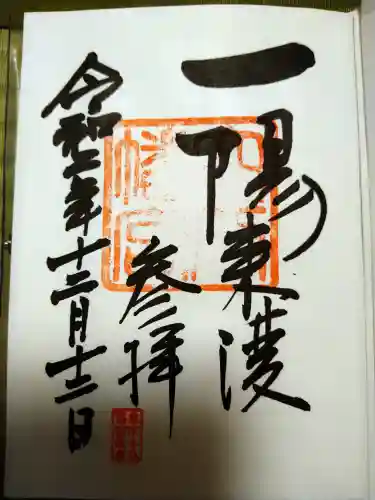 一陽來復
参拝
令和二年十二月十二日